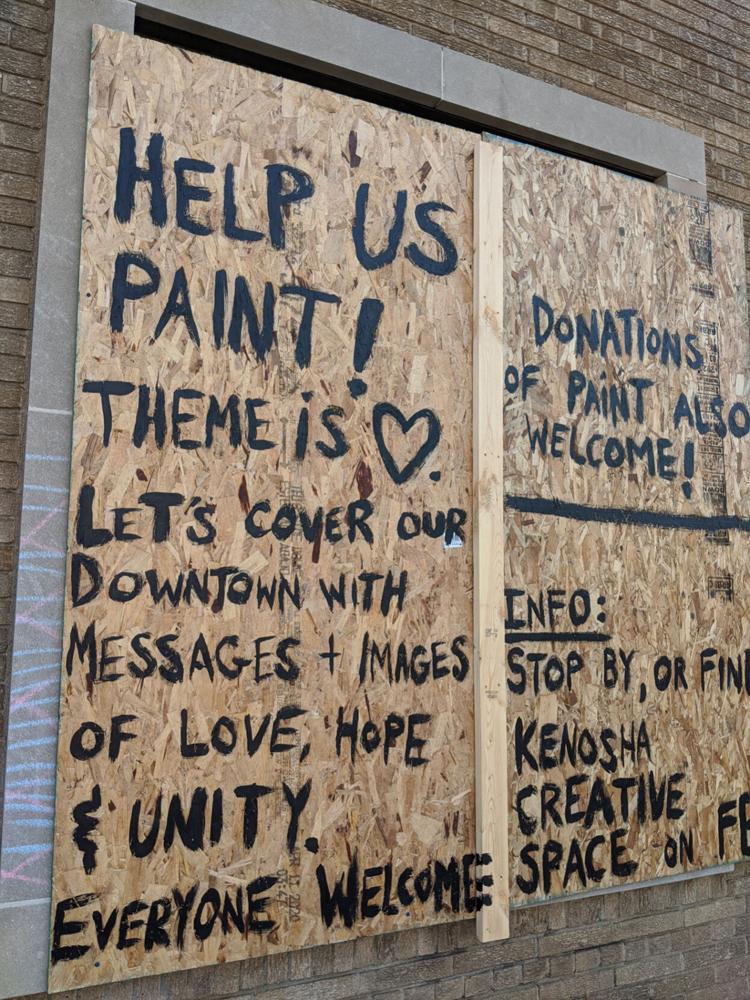 HELP US
PAINT!
THEME iS ♡.
LET'S COVER OUR
DOWNTOWN WITH
MESSAGES + IMAGES
OF LOVE, HOPE
& UNITY.
EVERYONE WELCOME
DONATIONS
OF PAiNT ALSO
WELCOME!
INFO:
STOP BY, OR FIN
KENOSHA
CREATIVE
SPACE ON